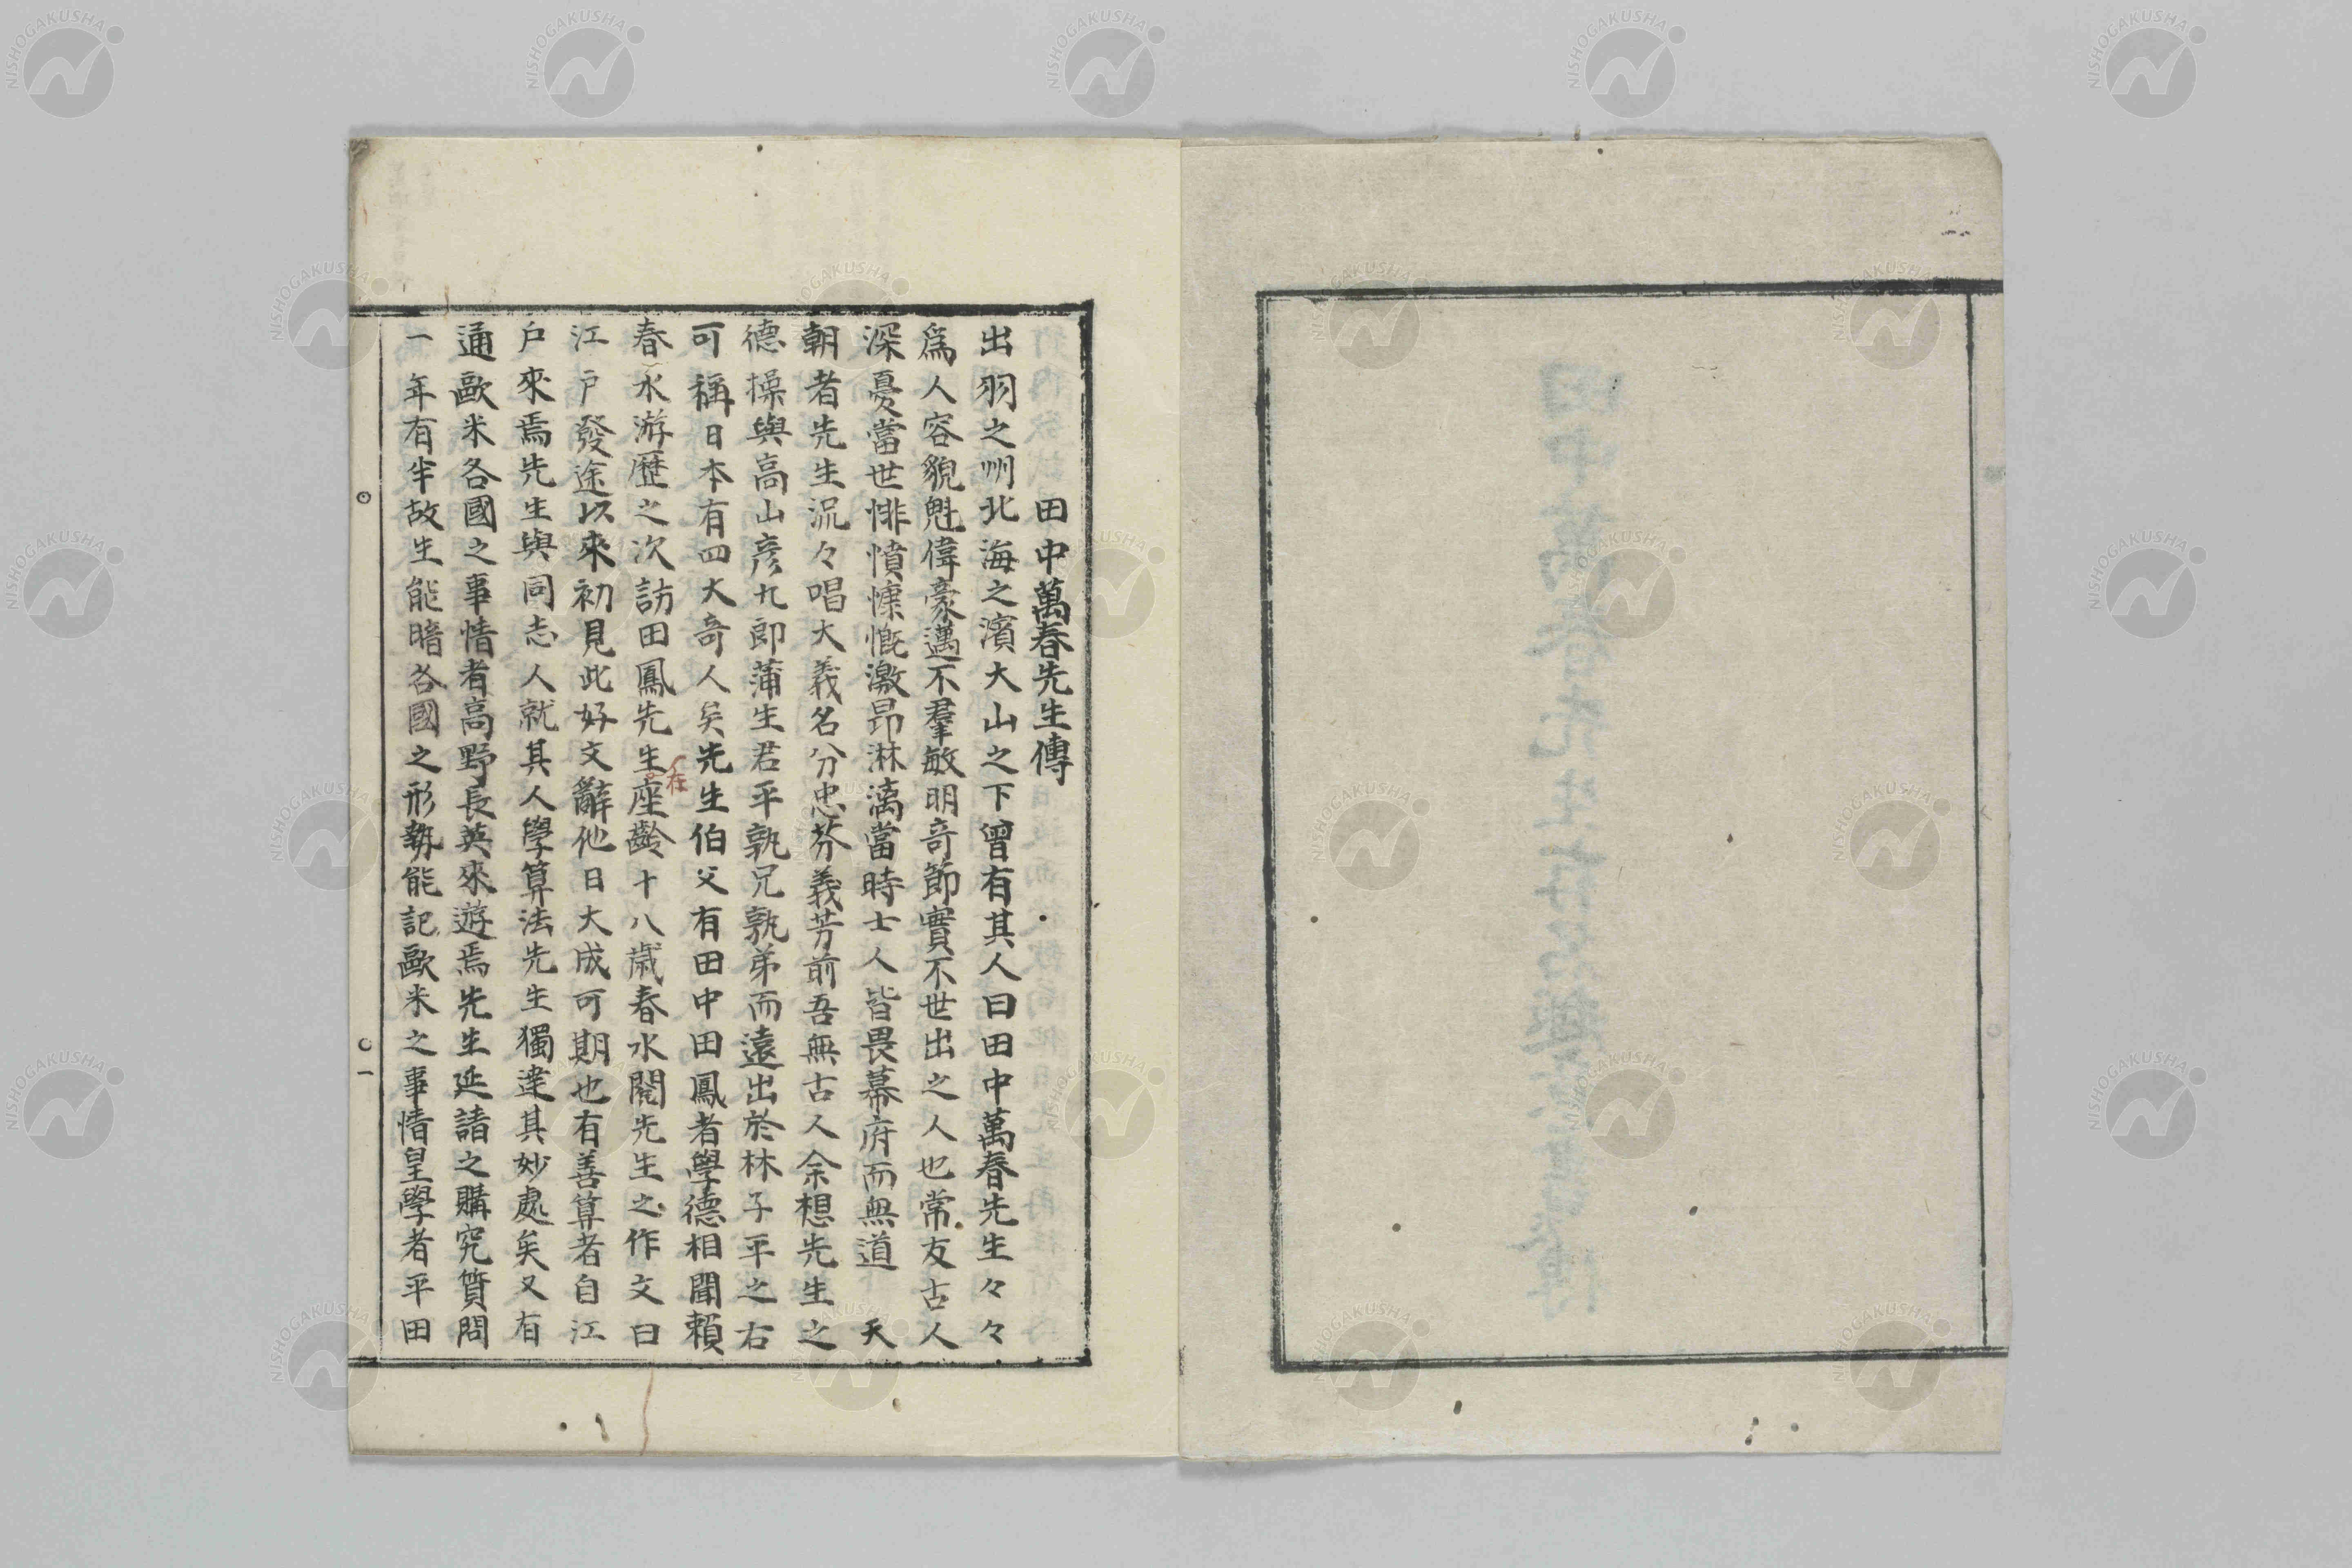 田中萬春先生傳
出羽之州北海之濱大山之下曾有其人曰田中萬春先生々々
爲人容貌魁偉豪邁不羣敏明奇節實不世出之人也常友古人
深憂當世悱憤慷慨激昂淋漓當時士人皆畏幕府而無道　天
朝者先生況々唱大義名分忠芬義芳前吾無古人余想先生之
德操與高山彦九郎蒲生君平孰兄孰弟而遠出於林子平之右
可稱日本有四大奇人矣先生伯父有田中田鳳者學德相聞賴
春水游歷之次訪田鳳先生座齡十八歲春水閱先生之作文曰
在
江戶發途以來初見此好文辭他日大成可期也有善算者自江
戶來焉先生與同志人就其人學算法先生獨達其妙處矣又有
通歐米各國之事情者高野長英來遊焉先生延請之購究質問
一年有半故生能暗各國之形勢能記歐米之事情皇學者平田
一
NISHOGAKUSHA